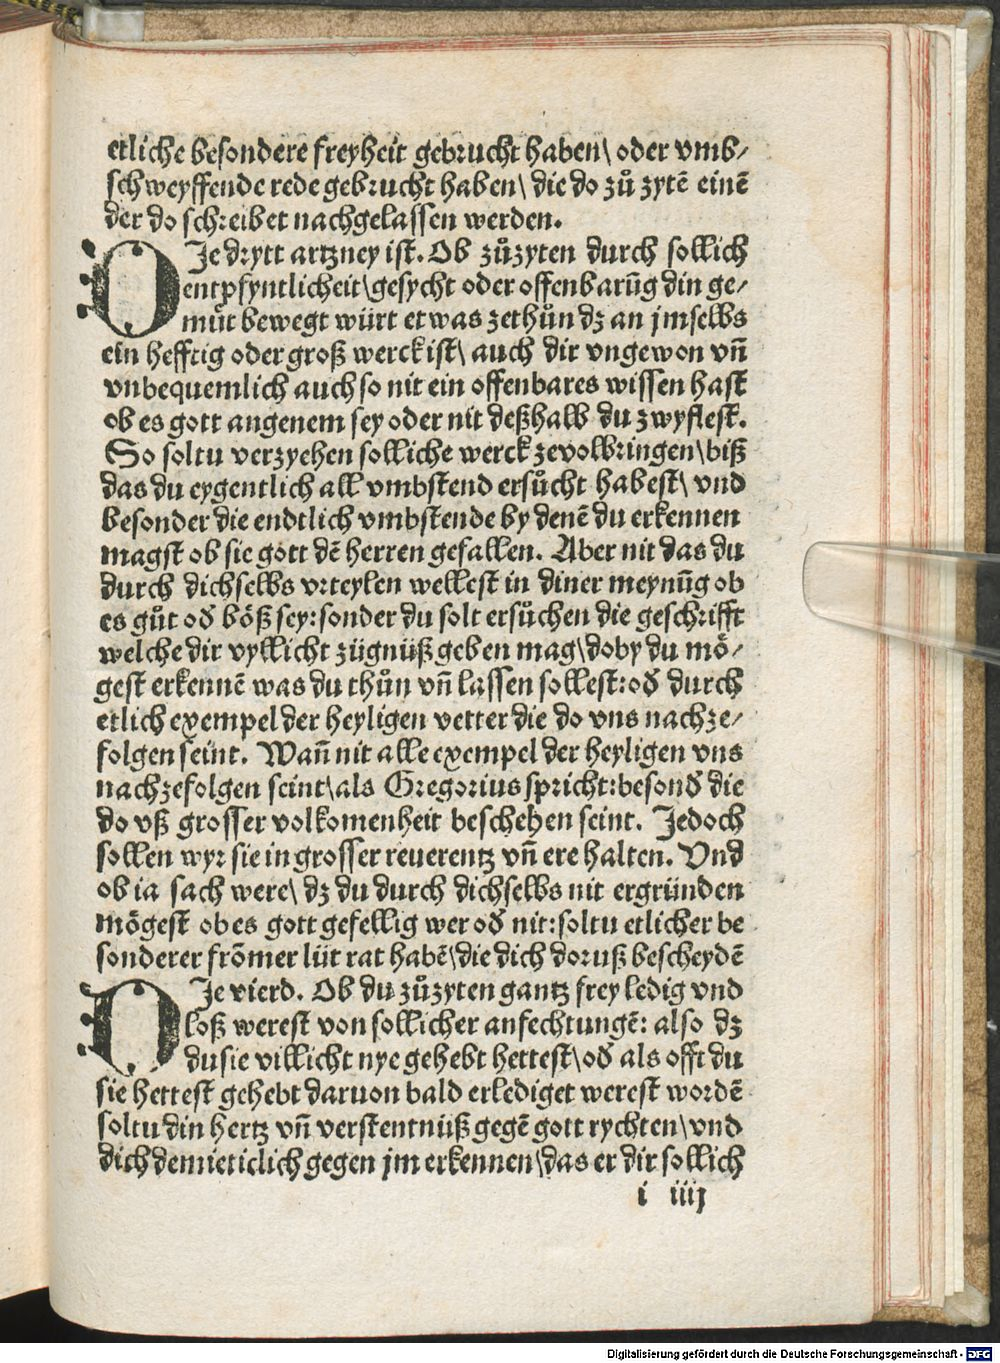 etliche besondere freyheit gebrucht haben\ oder vmb/
schweyffende rede gebrucht haben\ die do zů zytē einē
der do schreibet nachgelassen werden.
DIe drytt artzney ist. Ob zůzyten durch sollich
entpfyntlicheit\gesycht oder offenbarūg din ge/
můt bewegt würt etwas zethůn dz an jmselbs
ein hefftig oder groß werck ist\ auch dir vngewon vn̄
vnbequemlich auch so nit ein offenbares wissen hast
ob es gott angenem sey oder nit deßhalb du zwyflest.
So soltu verzyehen solliche werck zevolbringen\biß
das du eygentlich all vmbstend ersůcht habest\ vnd
besonder die endtlich vmbstende by denē du erkennen
magst ob sie gott dē herren gefallen. Aber nit das du
durch dichselbs vrteylen wellest in diner meynūg ob
es gůt od̄ böß sey:sonder du solt ersůchen die geschrifft
welche dir vyllicht zügnüß geben mag\doby du mö/
gest erkennē was du thůn vn̄ lassen sollest:od̄ durch
etlich exempel der heyligen vetter die do vns nachze/
folgen seint. Wan̄ nit alle exempel der heyligen vns
nachzefolgen seint\als Gregorius spricht:besond̄ die
do vß grosser volkomenheit beschehen seint. Jedoch
sollen wyr sie in grosser reuerentz vn̄ ere halten. Vnd
ob ia sach were\ dz du durch dichselbs nit ergründen
mögest ob es gott gefellig wer od̄ nit:soltu etlicher be
sonderer frōmer lüt rat habē\die dich doruß bescheydē
DIe vierd. Ob du zůzyten gantz frey ledig vnd
loß werest von sollicher anfechtungē: also dz
du sie villicht nye gehebt hettest\od̄ als offt du
sie hettest gehebt daruon bald erlediget werest wordē
soltu din hertz vn̄ verstentnüß gegē gott rychten\vnd
dich demieticlich gegen jm erkennen\das er dir sollich
i iiij
Digitalisierung gefördert durch die Deutsche Forschungsgemeinschaft - DFG